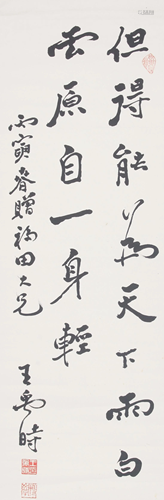 但得能為天下雨白
雲原自一身輕
丙寅春贈福田大兄
王禹時